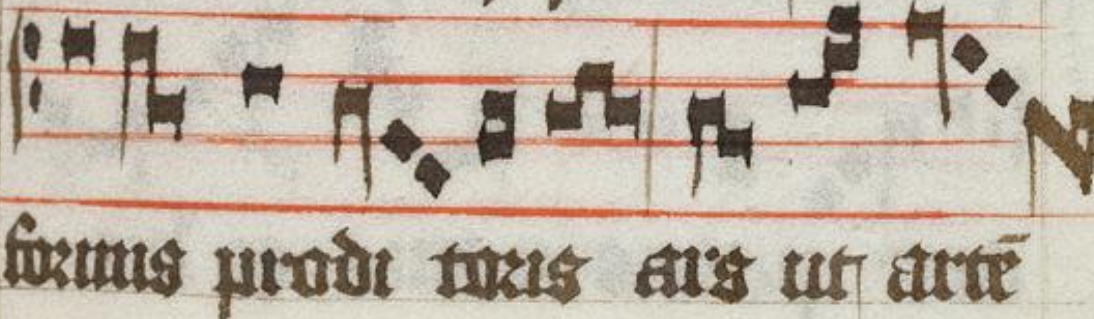 formis prodi toris ars ut artē